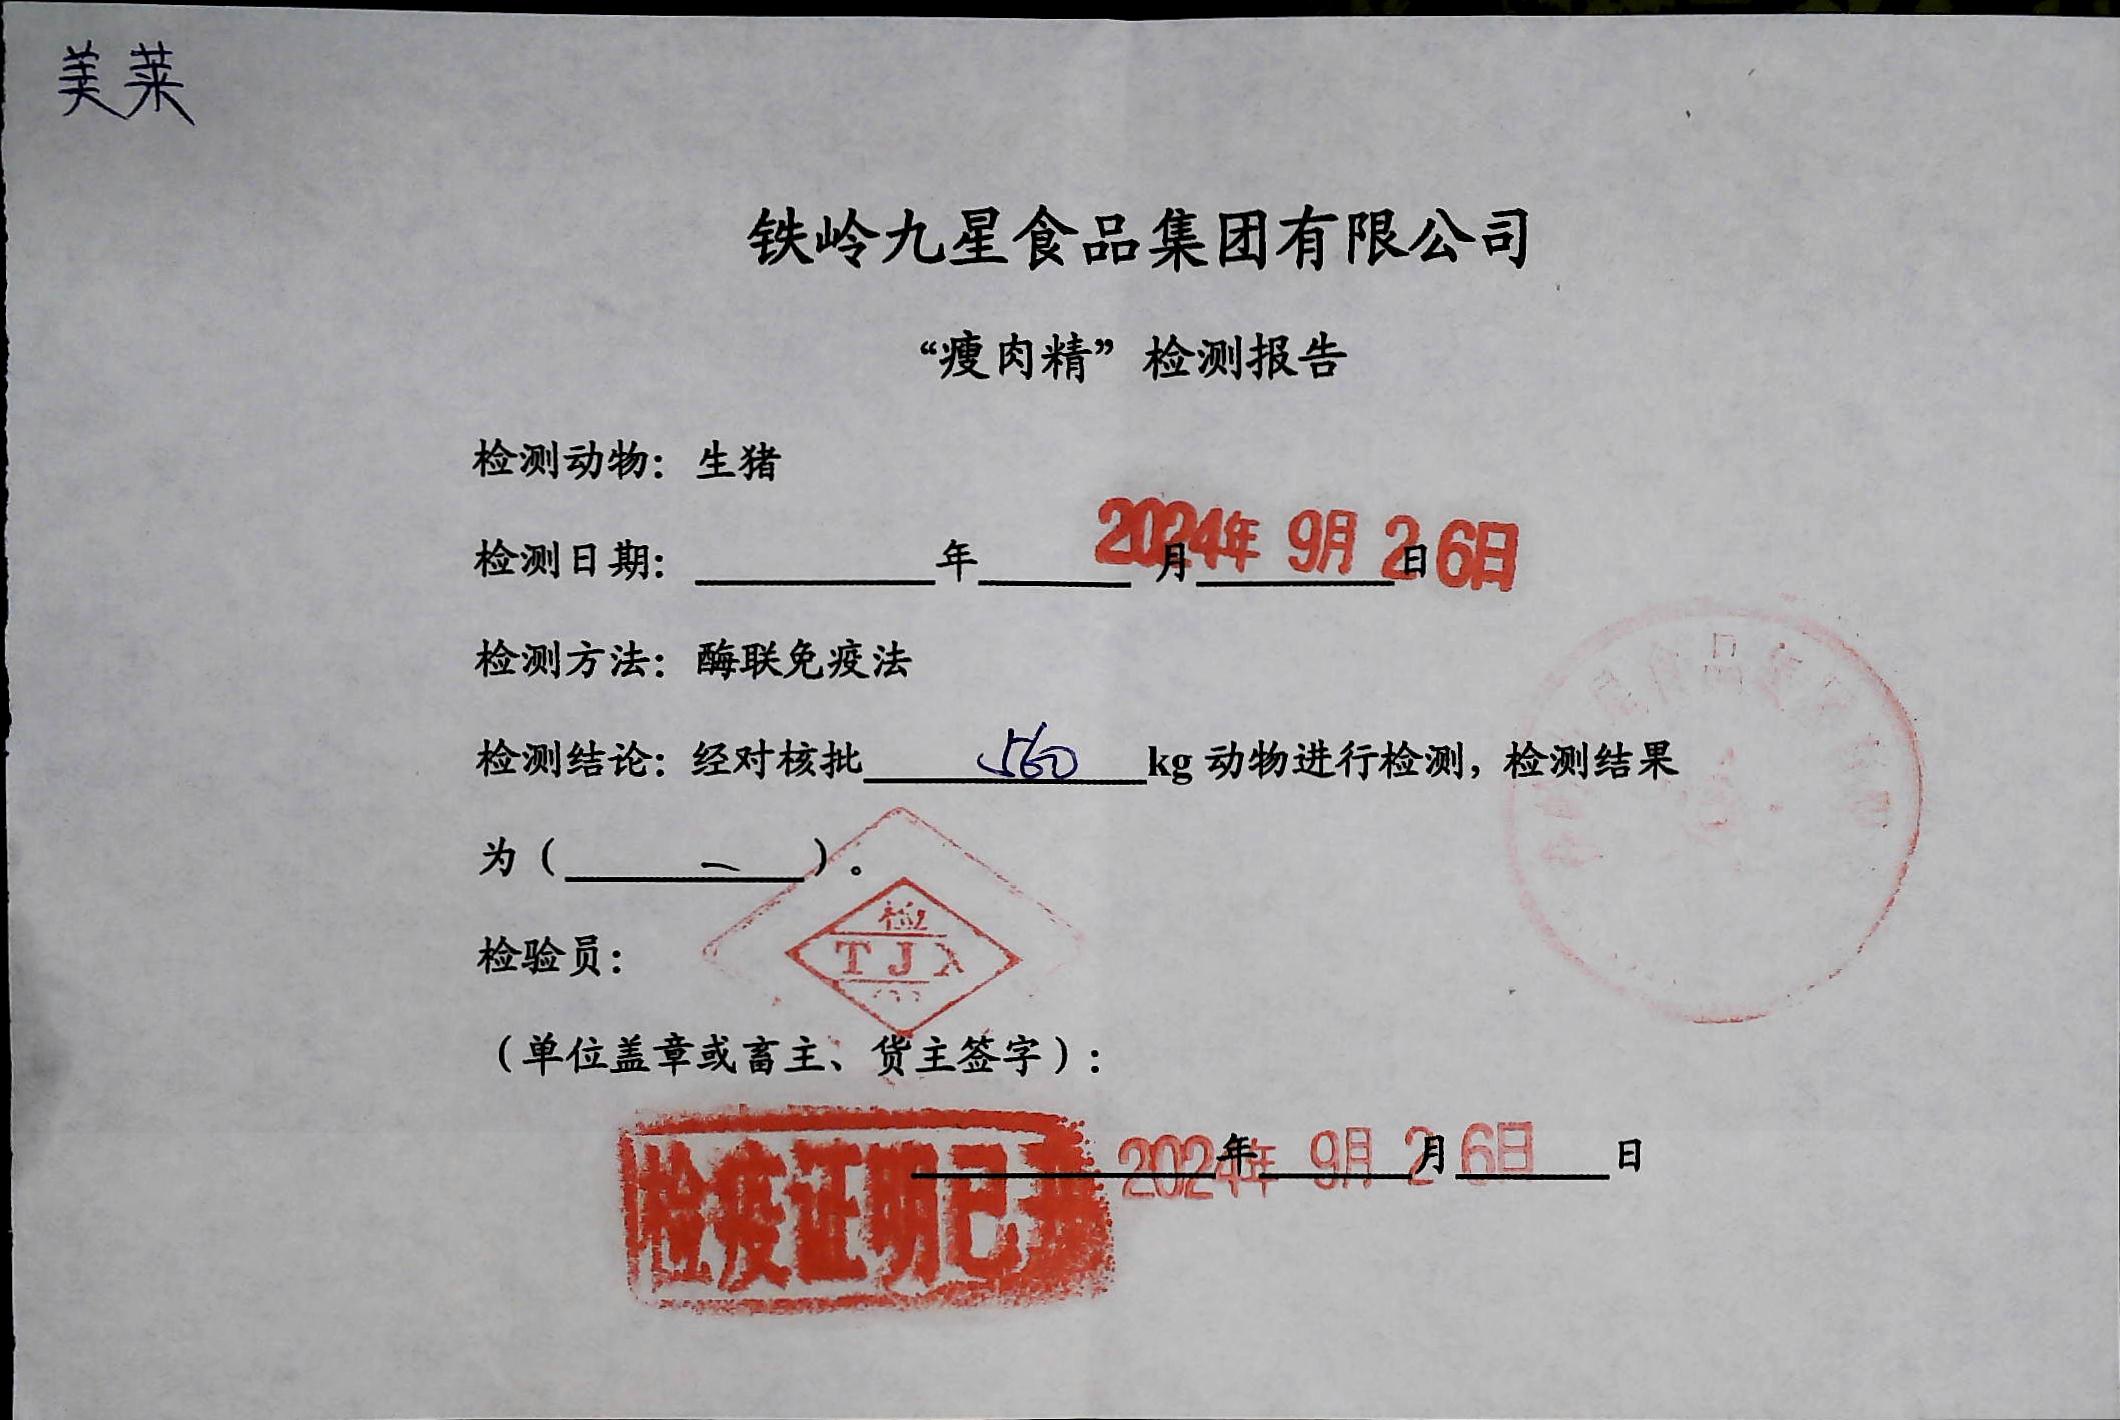 美莱
铁岭九星食品集团有限公司
“瘦肉精”检测报告
检测动物：生猪
检测日期：年月日
2024年 9月 26日
检测方法：酶联免疫法
检测结论：经对核批 560 kg 动物进行检测，检测结果
为（ 一 ）。
检
TJ
检验员：
（单位盖章或畜主、货主签字）：
年月日
2024年 9月 26日
检疫证明已